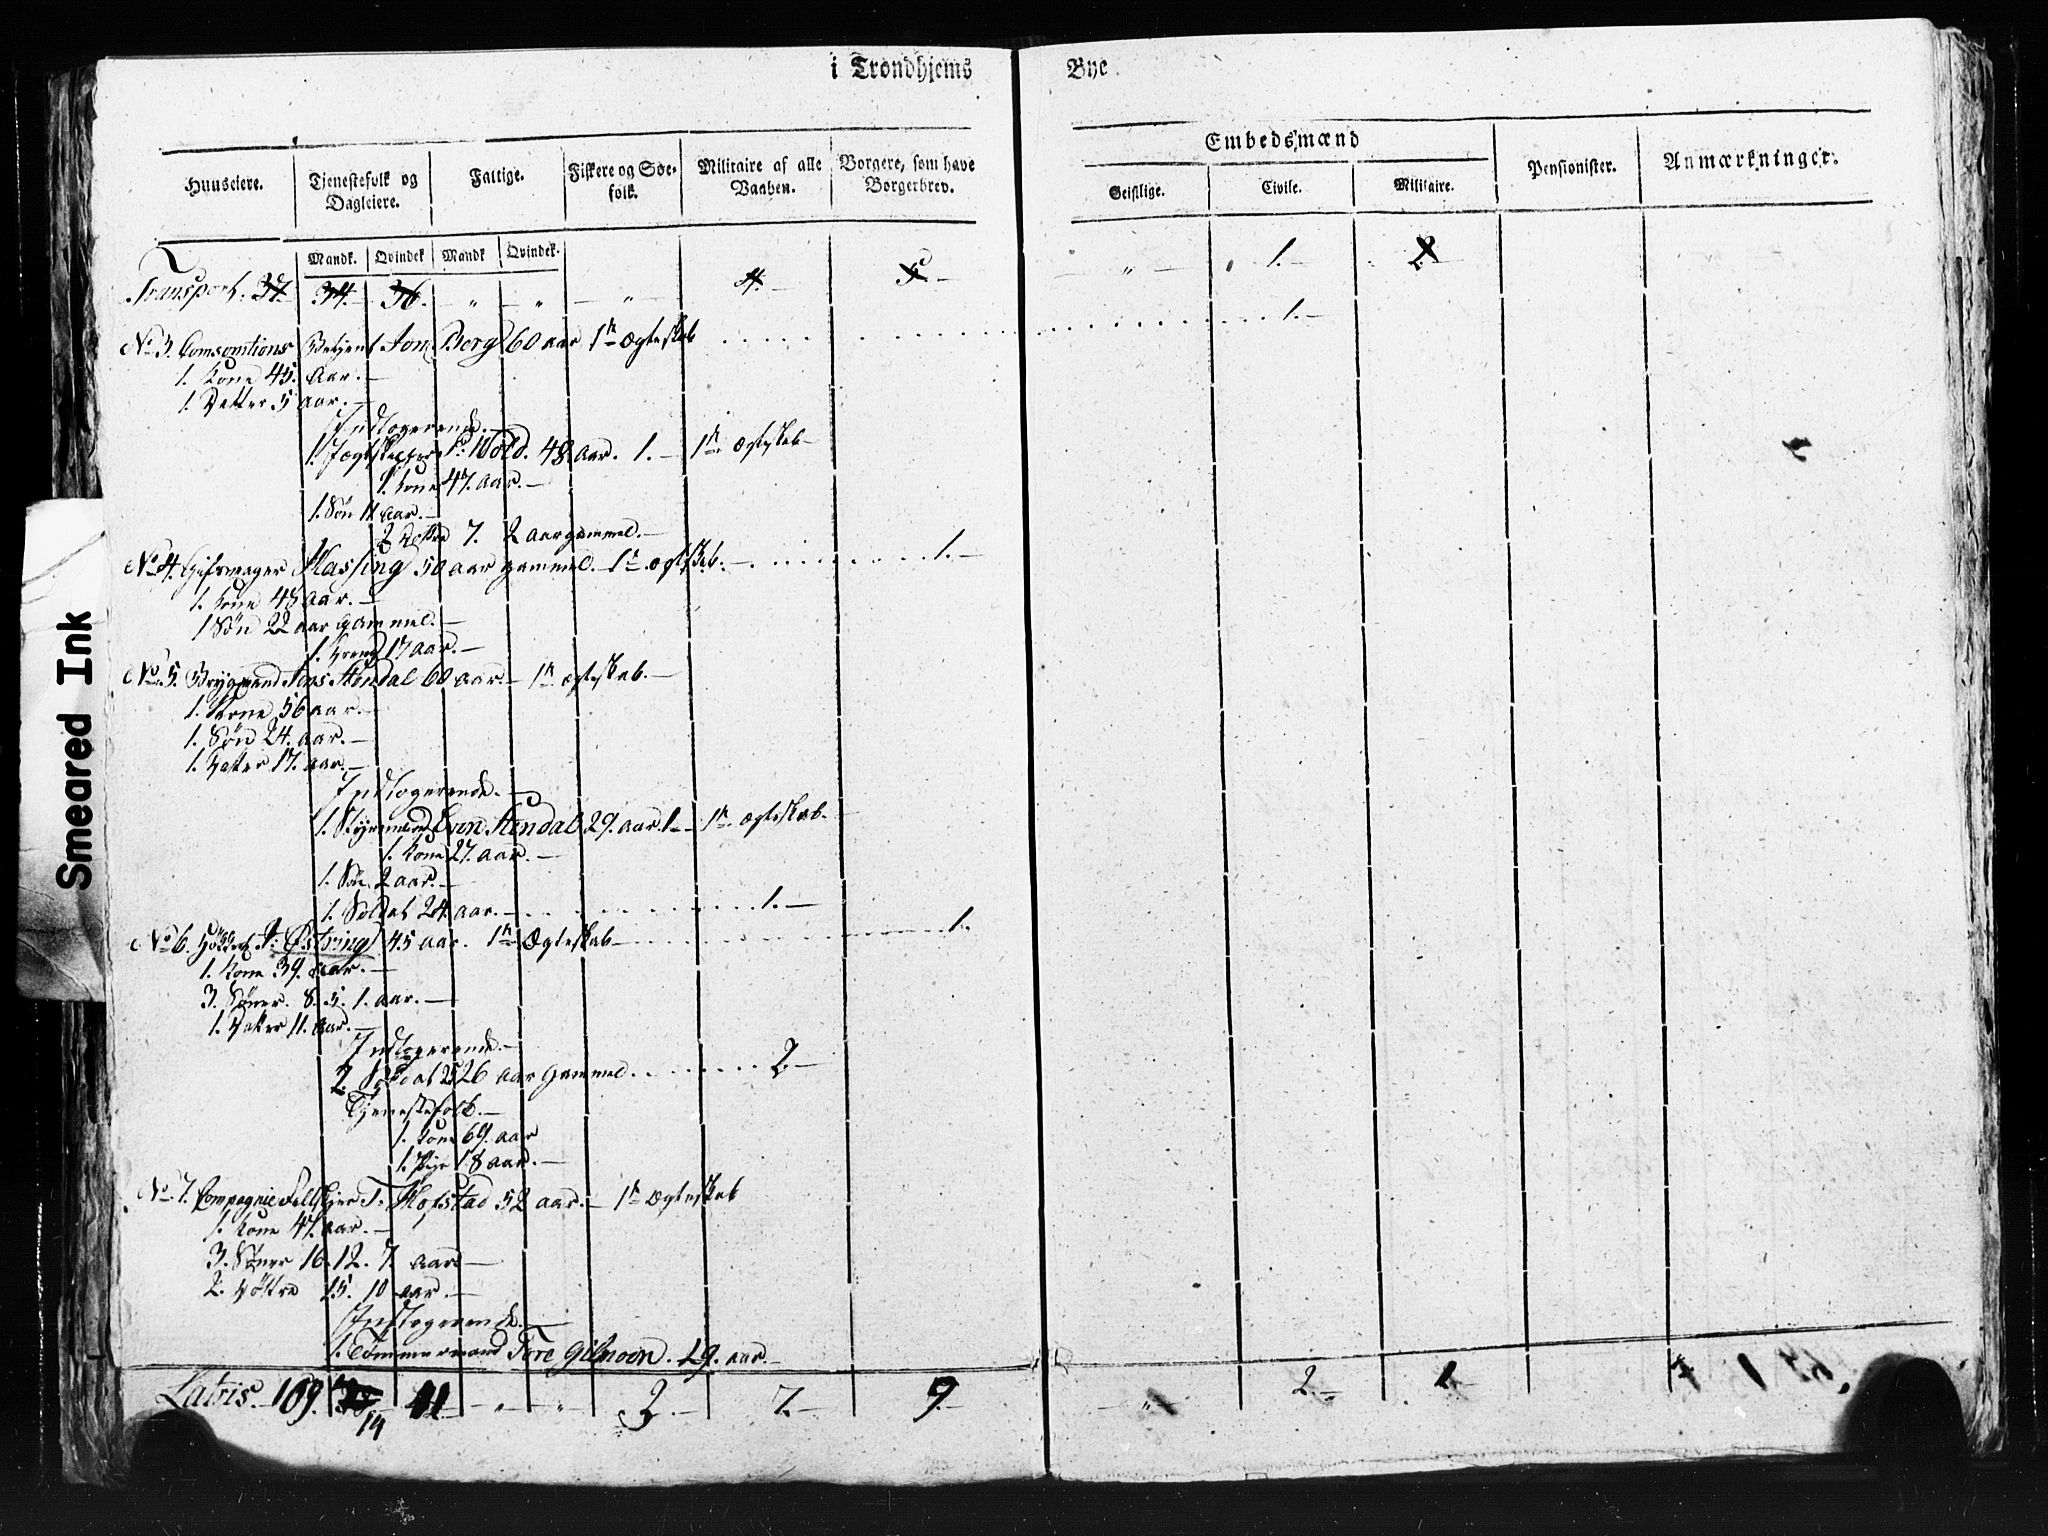 i Trondhjems Bye
Huuseiere. Tjenestefolk og Dagleiere. Fattige. Fiskere og Søefolk. Militaire af alle Vaaben. Borgere, som have Borgerbrev. Embedsmænd Geistlige. Civile. Militaire. Pensionister. Anmærkninger.
Mandk. Qvindek Mandk Qvindek.
Transport. 37. 34. 36. - „ - „ - „ - 4. - 5 - „ - 1. - 2 -
No 3. Comsomtions Betjent Jon Berg 60 aar 1te Ægteskab . . . . . 1. -
1. Kone 45. Aar. -
1 Datter 5 Aar. -
Indlogerende. -
1. Jægtskipper P: Wold. 48. aar. 1. - 1te Ægteskab -
1. Kone 47. aar. -
1. Søn 11 aar. -
2 Døttre 7. 2 aar gammel. -
No 4. Hassing 50 aar gammel. - 1te Ægteskab. - . . . . . 1. -
1. Kone 48 aar. -
1 Søn 22 aar gammel. -
1. Dreng 17 aar. -
No 5. Brygmand Jens Stendal 60 aar. - 1te Ægteskab. -
1. Kone 56 aar. -
1. Søn 24. aar. -
1. Datter 17. aar. -
Indlogerende. -
1. Styrmand Even Stendal 29. aar. 1. - 1te Ægteskab. -
1. Kone 27. aar. -
1. Søn 2 aar. -
1. Soldat 24. aar. - . . . . . 1. -
No 6. J: Østring 45 aar. 1te Ægteskab . . . . . 1. -
1. Kone 39. aar. -
3. Sønner. 8. 5. 1. aar. -
1. Datter 11. aar. -
Indlogerende. -
2. Soldat 25 26 aar gammel. . . . . 2 -
Tjenestefolk. -
1. Kone 69. aar
1. Pige 18 aar. -
No 7. Compagnie Feltskjer T. Hofstad 52 aar. - 1te Ægteskab
1. Kone 47. aar. -
3. Sønner 16. 12. 7. aar -
2. Døttre 15. 10 aar. -
Indlogerende. -
1. Tømmermand Tore 29. aar. -
Latris. 109. 14 41 - „ - „ - 2. - 7. - 9. - „ - 2. -
Smeared Ink